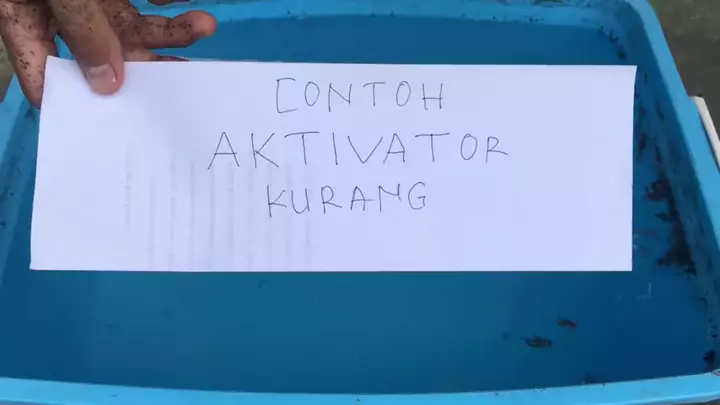 CONTOH
AKTIVATOR
KURANG